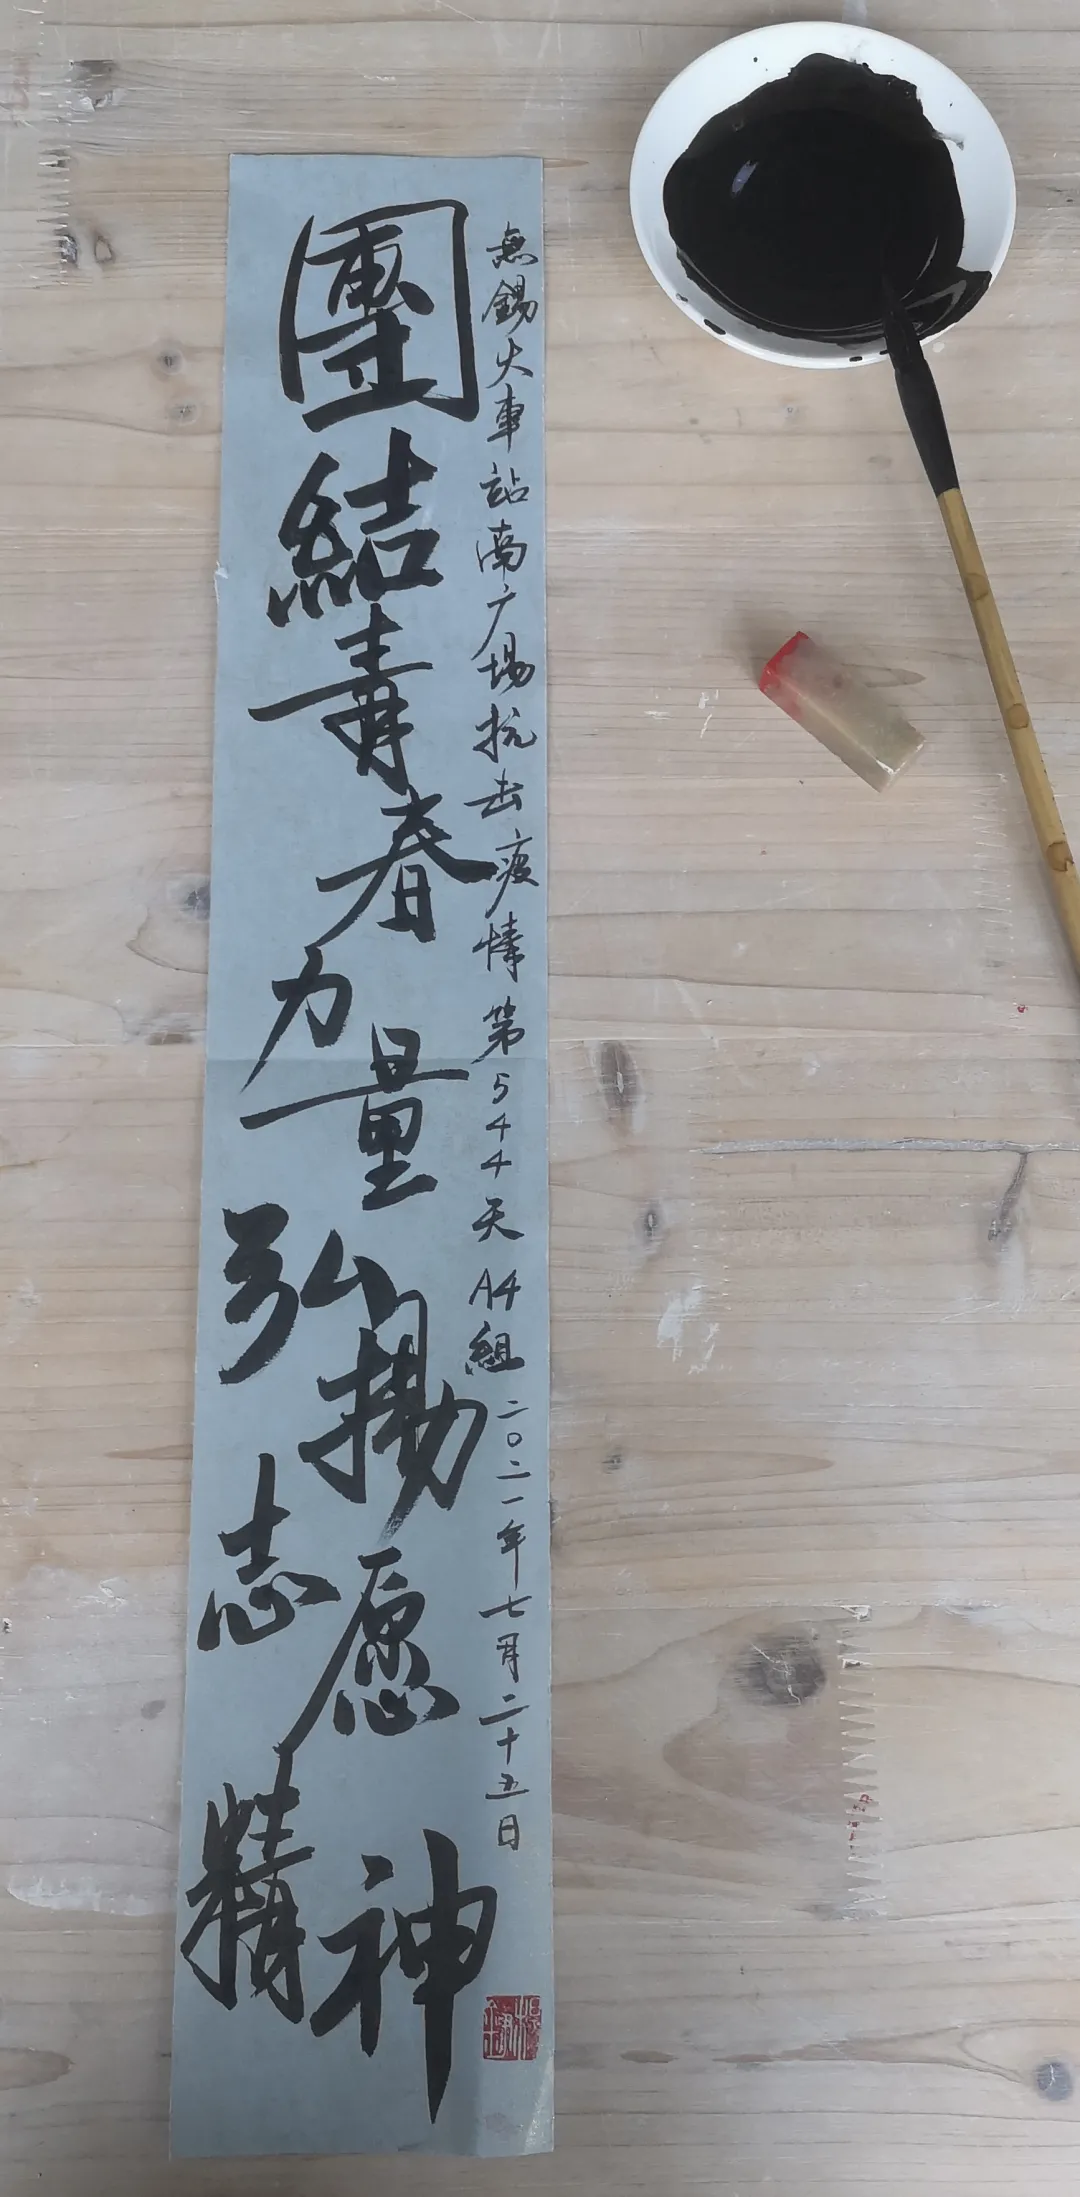 無錫火車站南广场抗击疫情第544天 A4組 二〇二一年七月二十五日
團結青春力量弘揚志愿精神